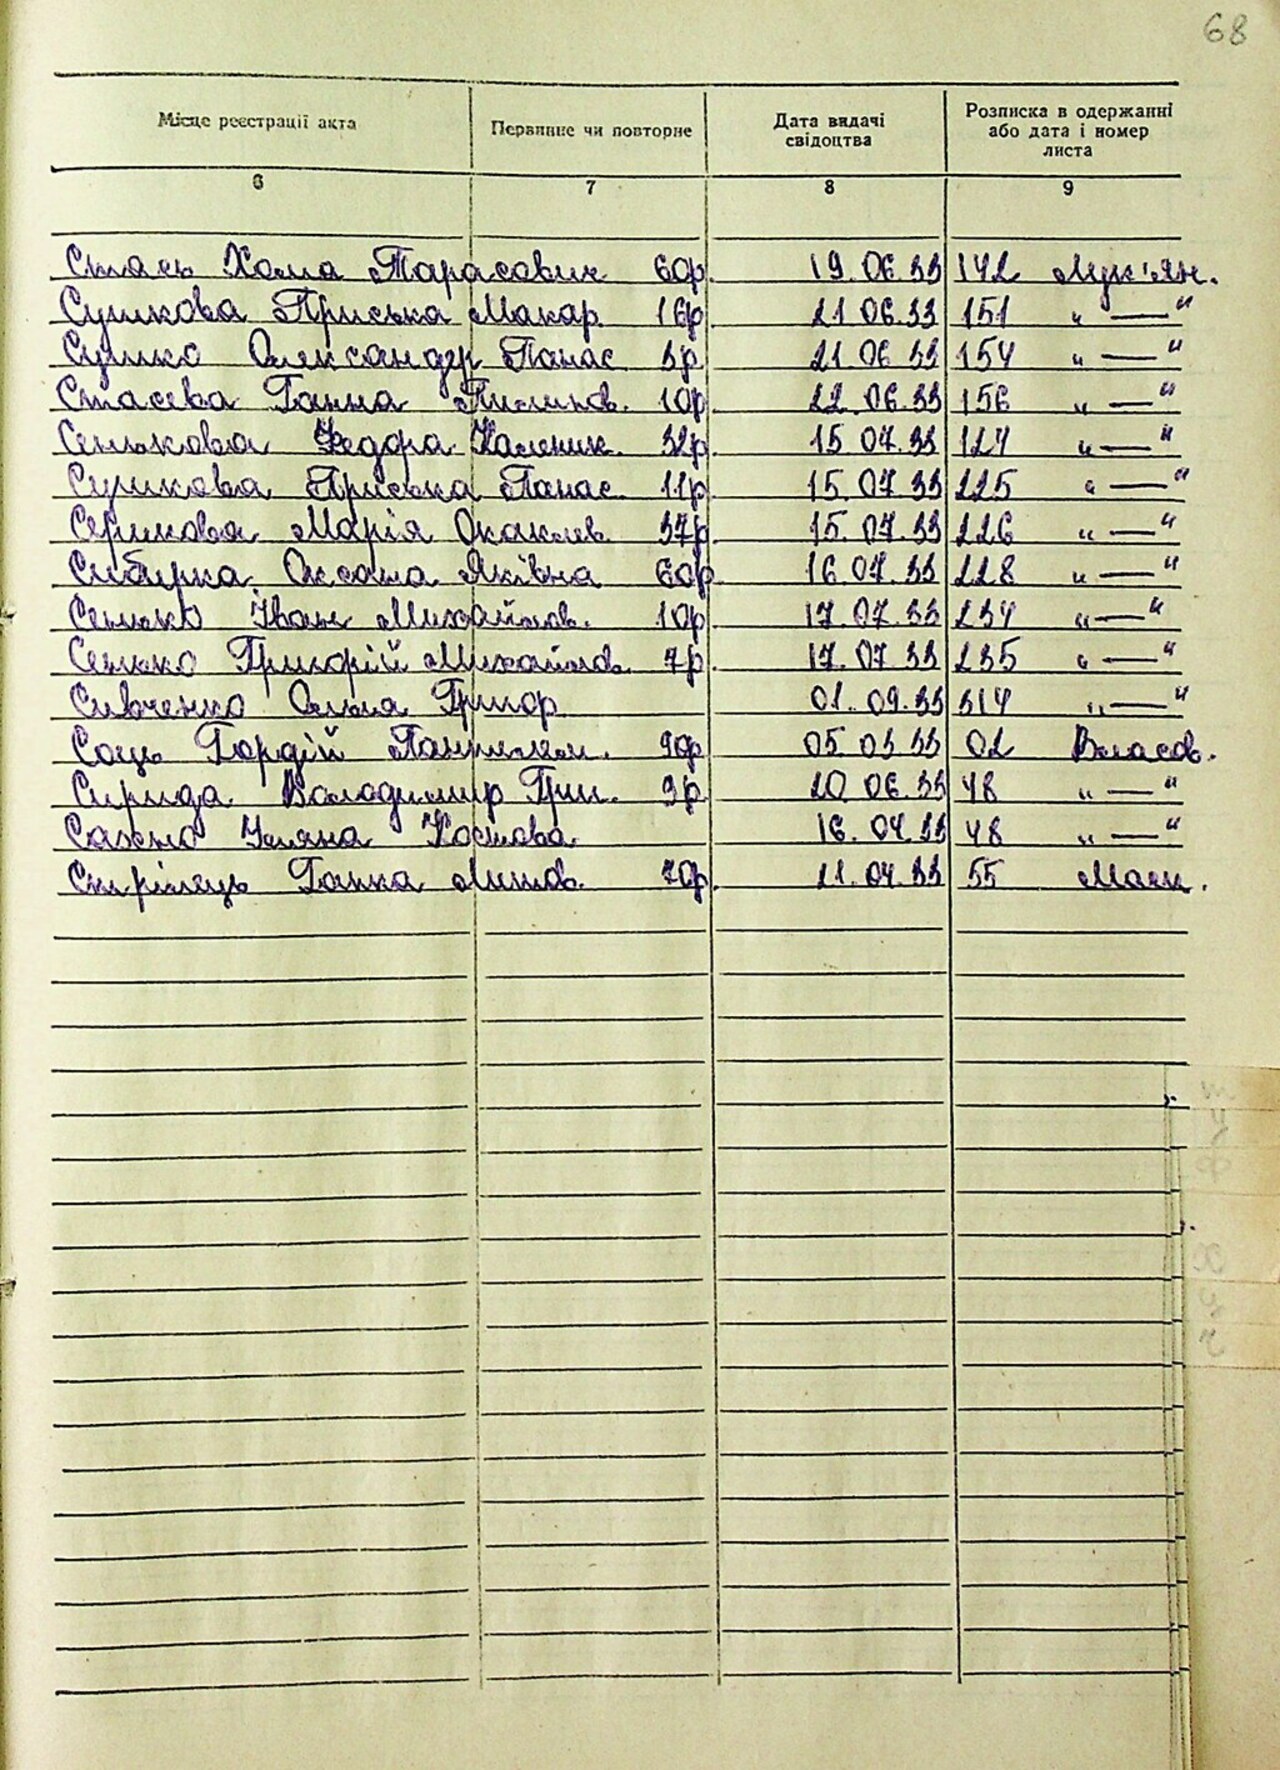 68
Місце реєстрації акта Первинне чи повторне Дата видачі свідоцтва Розписка в одержанні або дата і номер листа
6 7 8 9
Стась Хома Тарасович 60р. 19.06.33 142 Лук'ян.
Сушкова Приська Макар. 16р 21.06.33 151 "—"
Сушко Олександр Панас 3р 21.06.33 154 "—"
Стасева Ганна Пилипов. 10р 22.06.33 156 "—"
Сенькова Федора Каленик. 32р 15.07.33 124 "—"
Сушкова Приська Панас. 11р. 15.07.33 225 "—"
Марія 37р 15.07.33 226 "—"
Сибирка Оксана Яківна 60р 16.07.33 228 "—"
Сенько Іван Михайлов. 10р 17.07.33 234 "—"
Сенько Григорій Михайлов. 7р. 17.07.33 235 "—"
Сивченко Ольга Григор 01.09.33 314 "—"
Соць Гордій 90р 05.03.33 02 Власов.
Сирида Володимир Григ. 9р 20.06.33 48 "—"
Сахно Уляна Костова 16.04.33 48 "—"
Скрипець Ганна 70р. 21.04.33 55